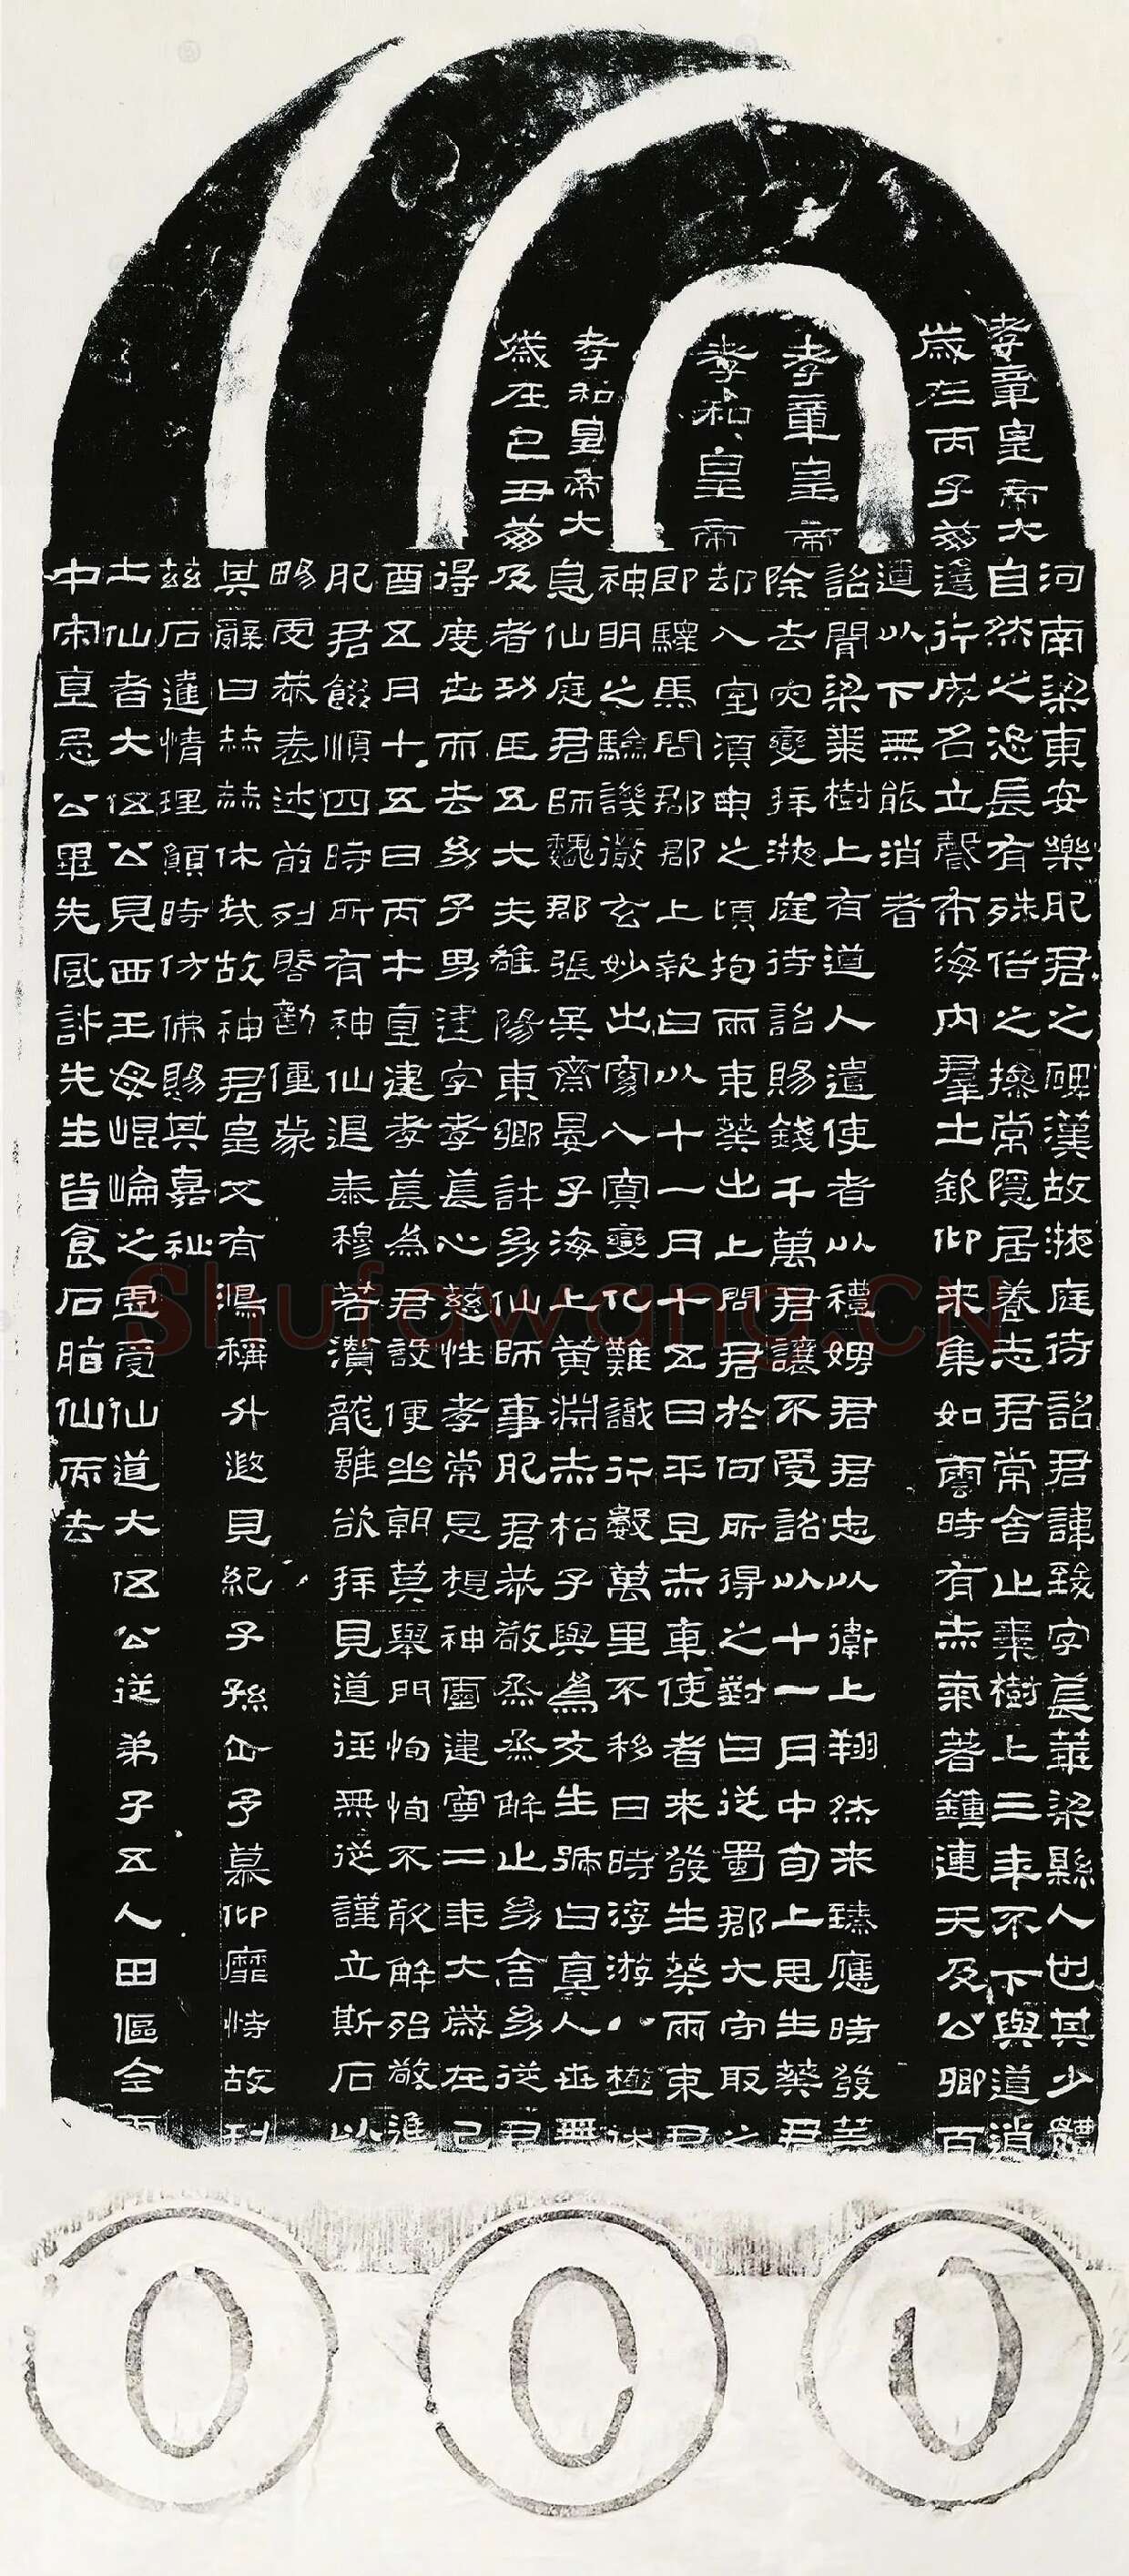 孝章皇帝大
歲在丙子崩
孝章皇帝
孝和皇帝
孝和皇帝大
歲在己丑崩
河南梁東安樂肥君之碑漢故掖庭待詔君諱致字萇華梁縣人也其少體
自然之恣長有殊俗之操常隱居養志君常舍止棗樹上三年不下與道逍
遙行成名立聲布海內群士欽仰來集如雲時有赤氣著鍾連天及公卿百
遼以下無能消者
詔聞梁棗樹上有道人遣使者以禮娉君君忠以衛上翔然來臻應時發筭
除去灾變拜掖庭待詔賜錢千萬君讓不受詔以十一月中旬上思生葵君
却入室須臾之頃抱兩束葵出上問君於何所得之對曰從蜀郡大守取之
即驛馬問郡郡上報曰以十一月十五日平旦赤車使者來發生葵兩束君
神明之驗譏徹玄妙出窈入冥變化難識行數萬里不移日時浮游八極休
息仙庭君師魏郡張吳齋晏子海上黃淵赤松子與為友生號曰真人世無
及者功臣五大夫雒陽東鄉許幼仙師事肥君恭敬烝烝解止幼舍幼從君
得度世而去幼子男建字孝萇心慈性孝常思想神靈建寧二年大歲在己
酉五月十五日丙午直建孝萇為君設便坐朝莫舉門恂恂不敢解殆敬進
肥君餟順四時所有神仙退泰穆若瀵龍雖欲拜見道徑無從謹立斯石以
暢虔恭表述前列啓勸僮蒙
其辭曰赫赫休哉故神君皇又有鴻稱升遐見紀子孫企予慕仰靡恃故刊
茲石達情理願時仿佛賜其嘉祉
土仙者大伍公見西王母崐崘之虛受仙道大伍公從弟子五人田傴全雨
中宋直忌公畢先風許先生皆食石脂仙而去
Shufawang.CN